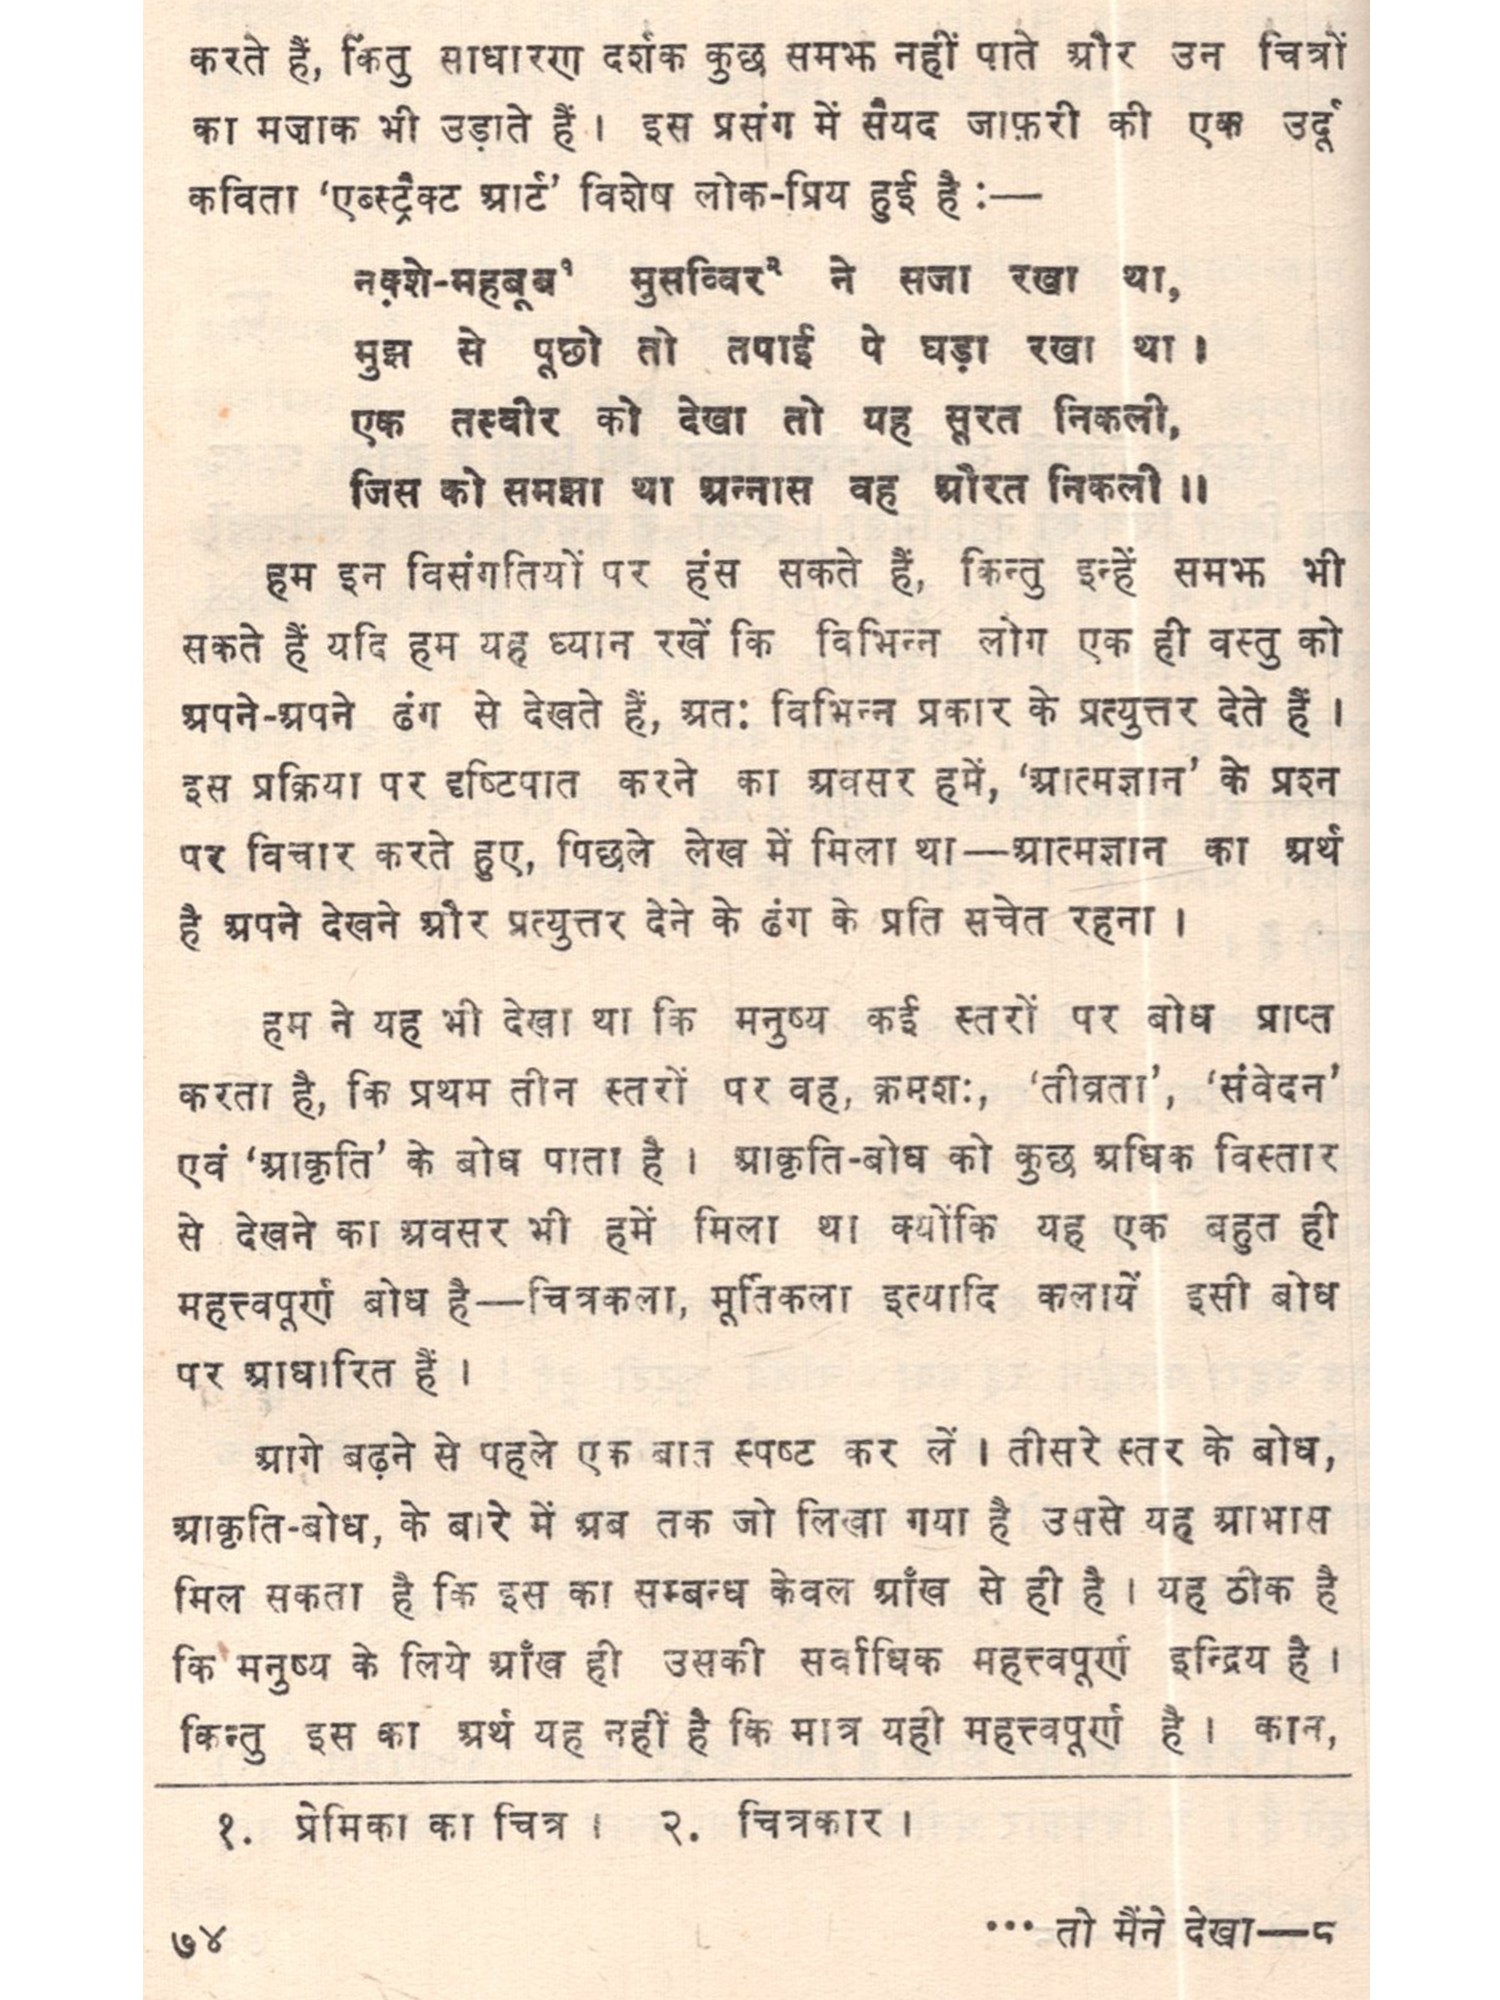 करते हैं, किंतु साधारण दर्शक कुछ समझ नहीं पाते और उन चित्रों
का मज़ाक भी उड़ाते हैं । इस प्रसंग में सैयद जाफ़री की एक उर्दू
कविता ‘एब्स्ट्रैक्ट आर्ट’ विशेष लोक-प्रिय हुई है :—
नक़्शे-महबूब१ मुसव्विर२ ने सजा रखा था,
मुझ से पूछो तो तपाई पे घड़ा रखा था ।
एक तस्वीर को देखा तो यह सूरत निकली,
जिस को समझा था अन्नास वह औरत निकली ॥
हम इन विसंगतियों पर हंस सकते हैं, किन्तु इन्हें समझ भी
सकते हैं यदि हम यह ध्यान रखें कि विभिन्न लोग एक ही वस्तु को
अपने-अपने ढंग से देखते हैं, अतः विभिन्न प्रकार के प्रत्युत्तर देते हैं ।
इस प्रक्रिया पर दृष्टिपात करने का अवसर हमें, ‘आत्मज्ञान’ के प्रश्न
पर विचार करते हुए, पिछले लेख में मिला था—आत्मज्ञान का अर्थ
है अपने देखने और प्रत्युत्तर देने के ढंग के प्रति सचेत रहना ।
हम ने यह भी देखा था कि मनुष्य कई स्तरों पर बोध प्राप्त
करता है, कि प्रथम तीन स्तरों पर वह, क्रमशः, ‘तीव्रता’, ‘संवेदन’
एवं ‘आकृति’ के बोध पाता है । आकृति-बोध को कुछ अधिक विस्तार
से देखने का अवसर भी हमें मिला था क्योंकि यह एक बहुत ही
महत्त्वपूर्ण बोध है—चित्रकला, मूर्तिकला इत्यादि कलायें इसी बोध
पर आधारित हैं ।
आगे बढ़ने से पहले एक बात स्पष्ट कर लें । तीसरे स्तर के बोध,
आकृति-बोध, के बारे में अब तक जो लिखा गया है उससे यह आभास
मिल सकता है कि इस का सम्बन्ध केवल आँख से ही है । यह ठीक है
कि मनुष्य के लिये आँख ही उसकी सर्वाधिक महत्त्वपूर्ण इन्द्रिय है ।
किन्तु इस का अर्थ यह नहीं है कि मात्र यही महत्त्वपूर्ण है । कान,
१. प्रेमिका का चित्र । २. चित्रकार ।
७४
••• तो मैंने देखा—८